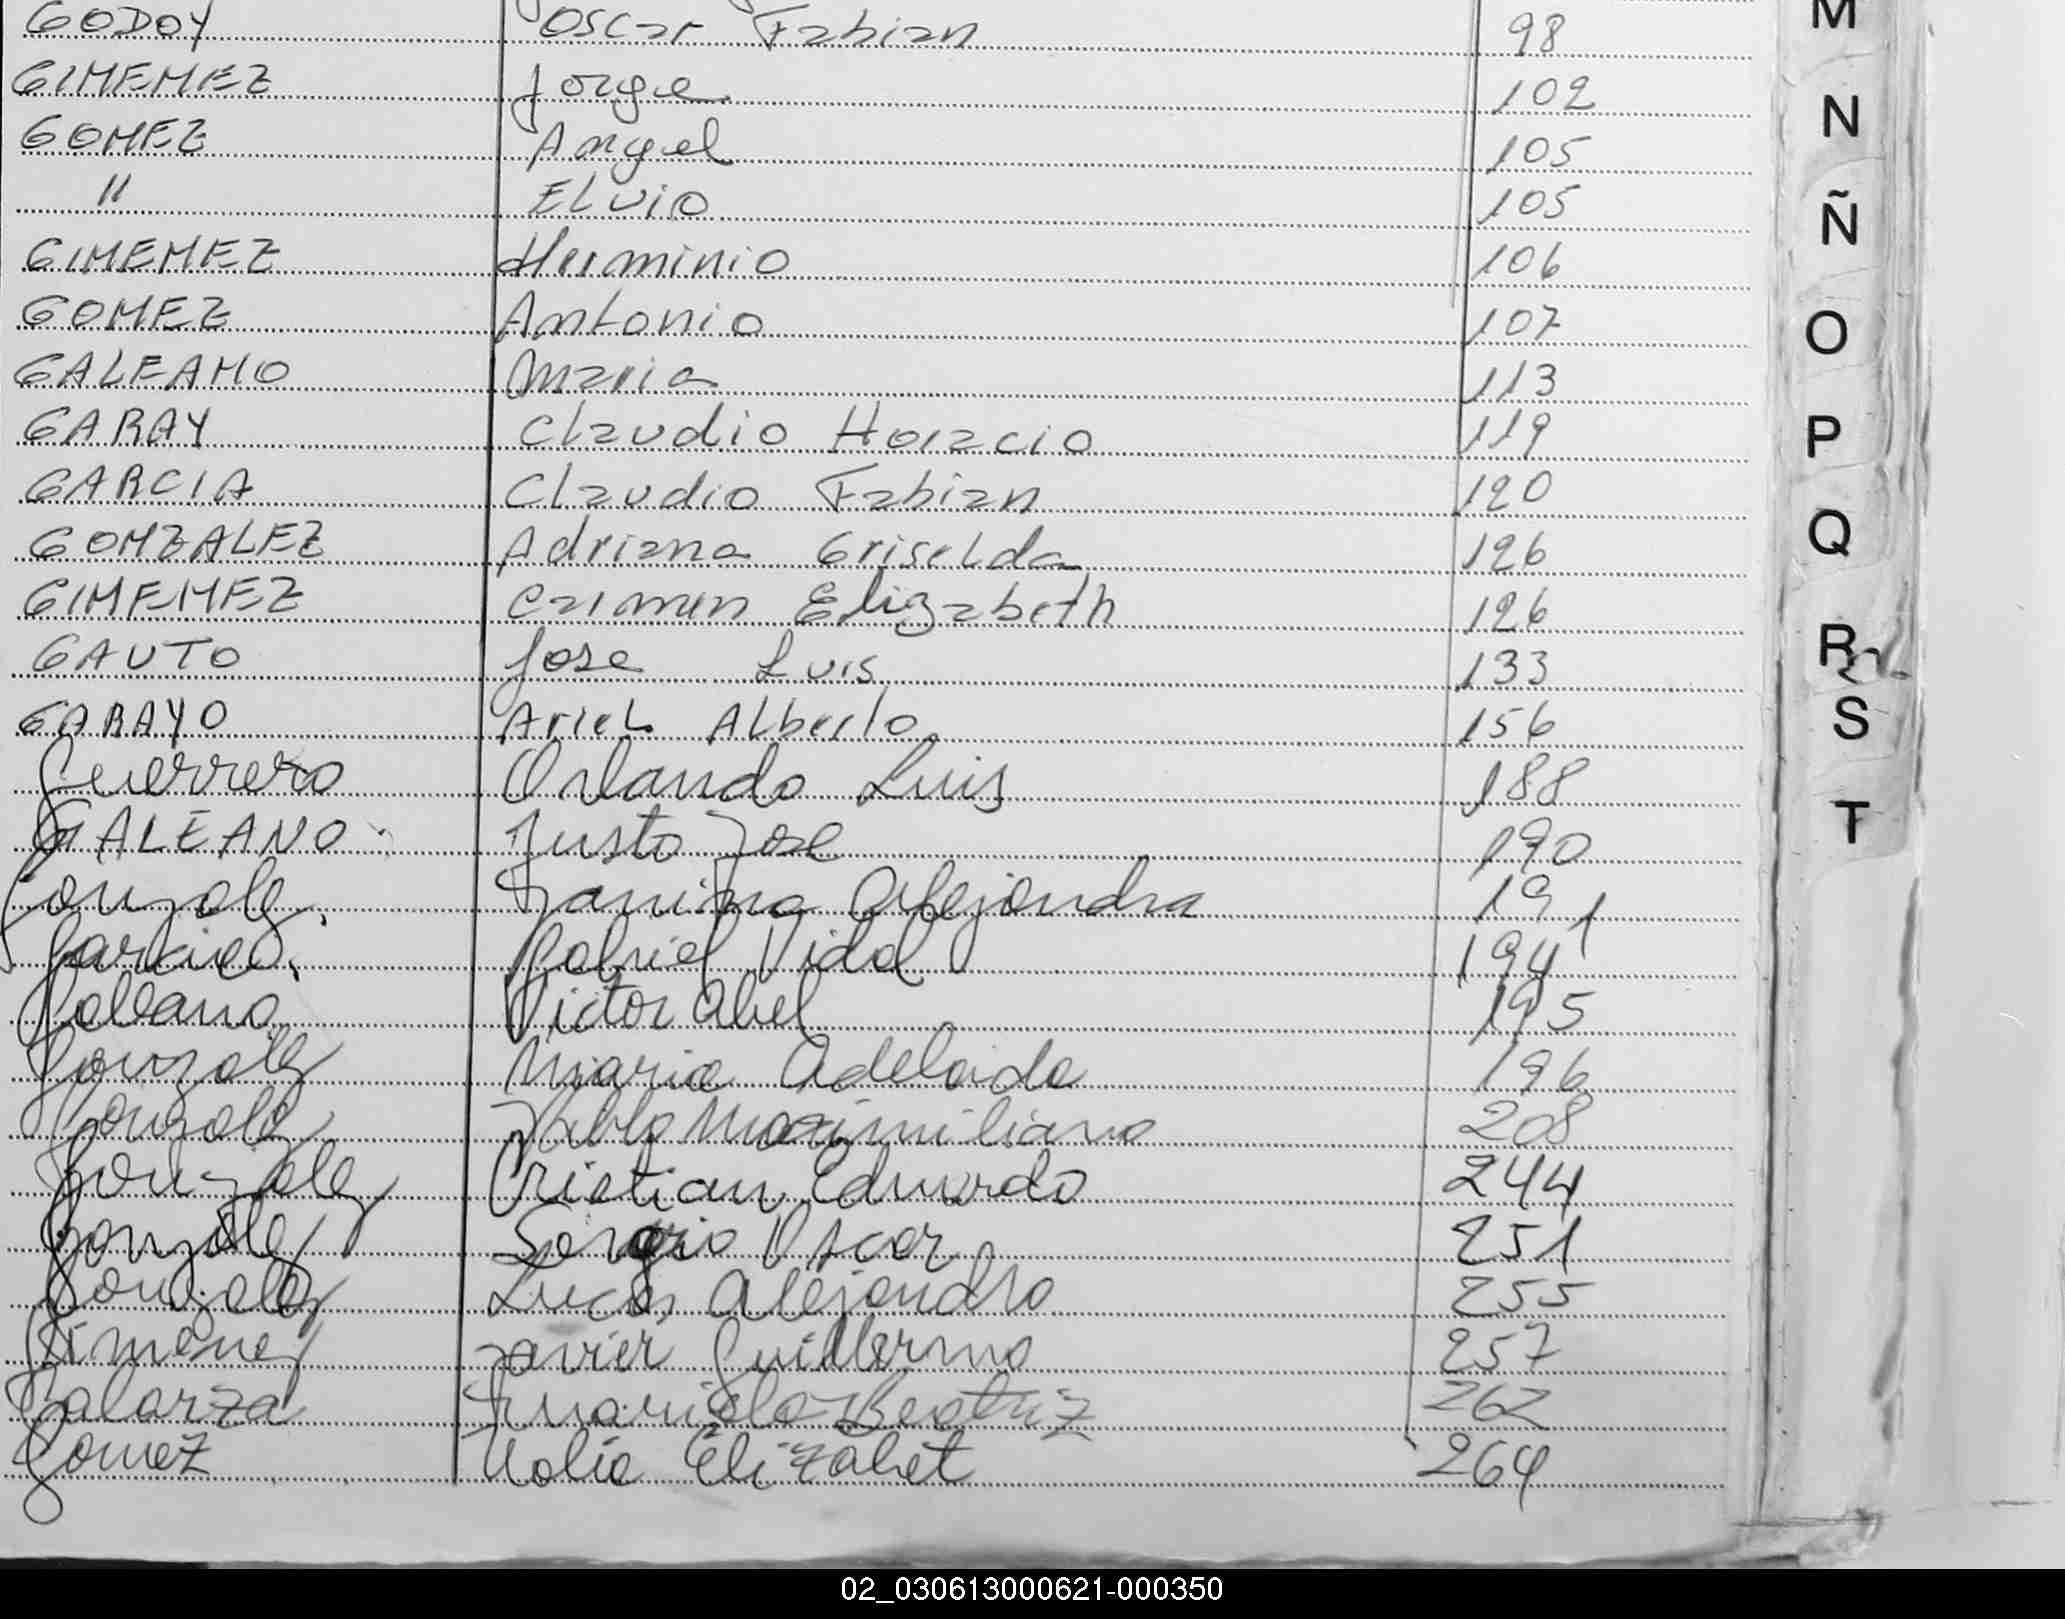 GODOY Oscar Fabian 98
GIMEMEZ Jorge 102
GOMEZ Angel 105
" ELvio 105
GIMEMEZ Herminio 106
GOMEZ Antonio 107
GALEANO Maria 113
GARAY Claudio Horacio 119
GARCIA Claudio Fabian 120
GONZALEZ Adriana Griselda 126
GIMENEZ Carmen Elizabeth 126
GAUTO Jose Luis 133
GARAYO Ariel Alberto 156
Guerrero Orlando Luis 188
GALEANO Justo Jose 190
Gonzalez Alejandra 191
Garcia Gabriel Vidal 194
Galeano Victor Abel 195
Gonzalez Maria Adelaida 196
Gonzalez Pablo Maximiliano 208
Gonzalez Cristian Eduardo 244
Gonzalez Sergio Oscar 251
Gonzalez Lucas Alejandro 255
Gimenez Javier Guillermo 257
Galarza Beatriz 262
Gomez Elizabet 264
M
N
Ñ
O
P
Q
R
S
T
02_030613000621-000350